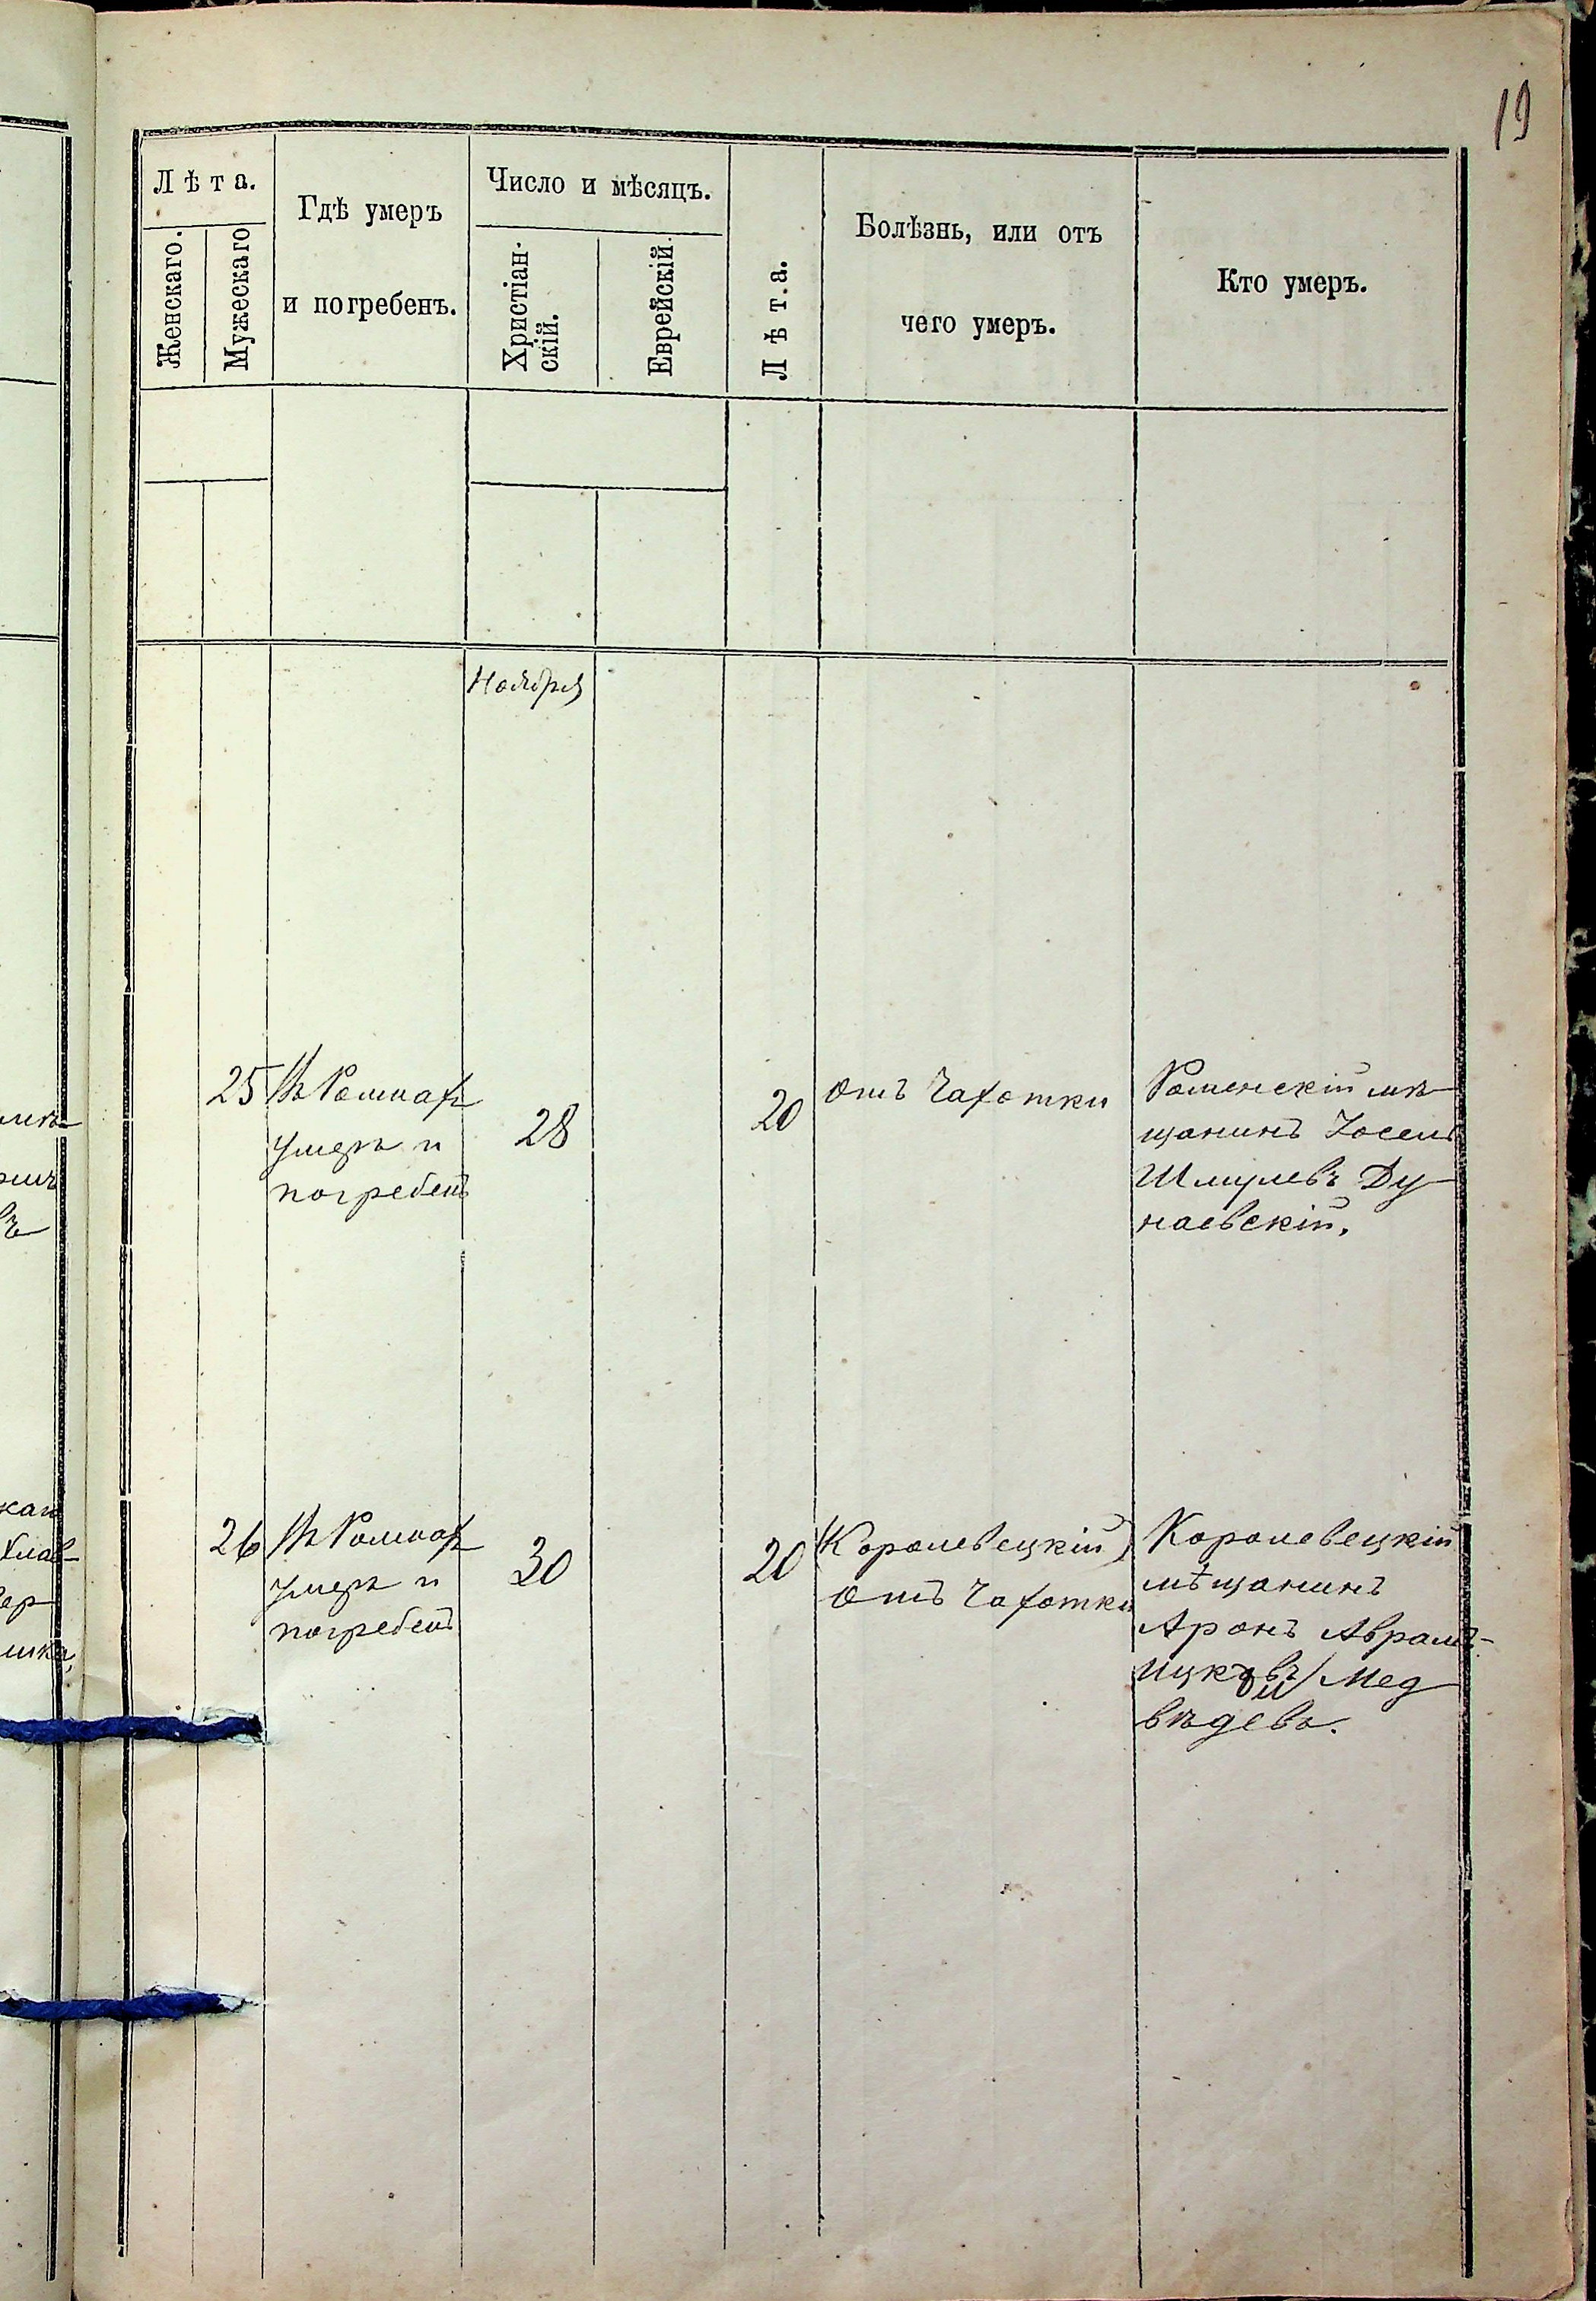 19
Лѣта.
Женскаго.
Мужескаго
Гдѣ умеръ
и погребенъ.
Число и мѣсяцъ.
Христіан-
скій.
Еврейскій.
Лѣта.
Болѣзнь, или отъ
чего умеръ.
Кто умеръ.
Ноября
25
Въ Ромнахъ
умеръ и
погребенъ
28
20
отъ Чахотки
Роменскій мѣ-
щанинъ Іосель
Шмулевъ Ду-
наевскій.
26
Въ Ромнахъ
умеръ и
погребенъ
30
20
(Королевецкій)
отъ Чахотки
Королевецкій
мѣщанинъ
Аронъ Аврамъ-
Мед
вѣдевъ.